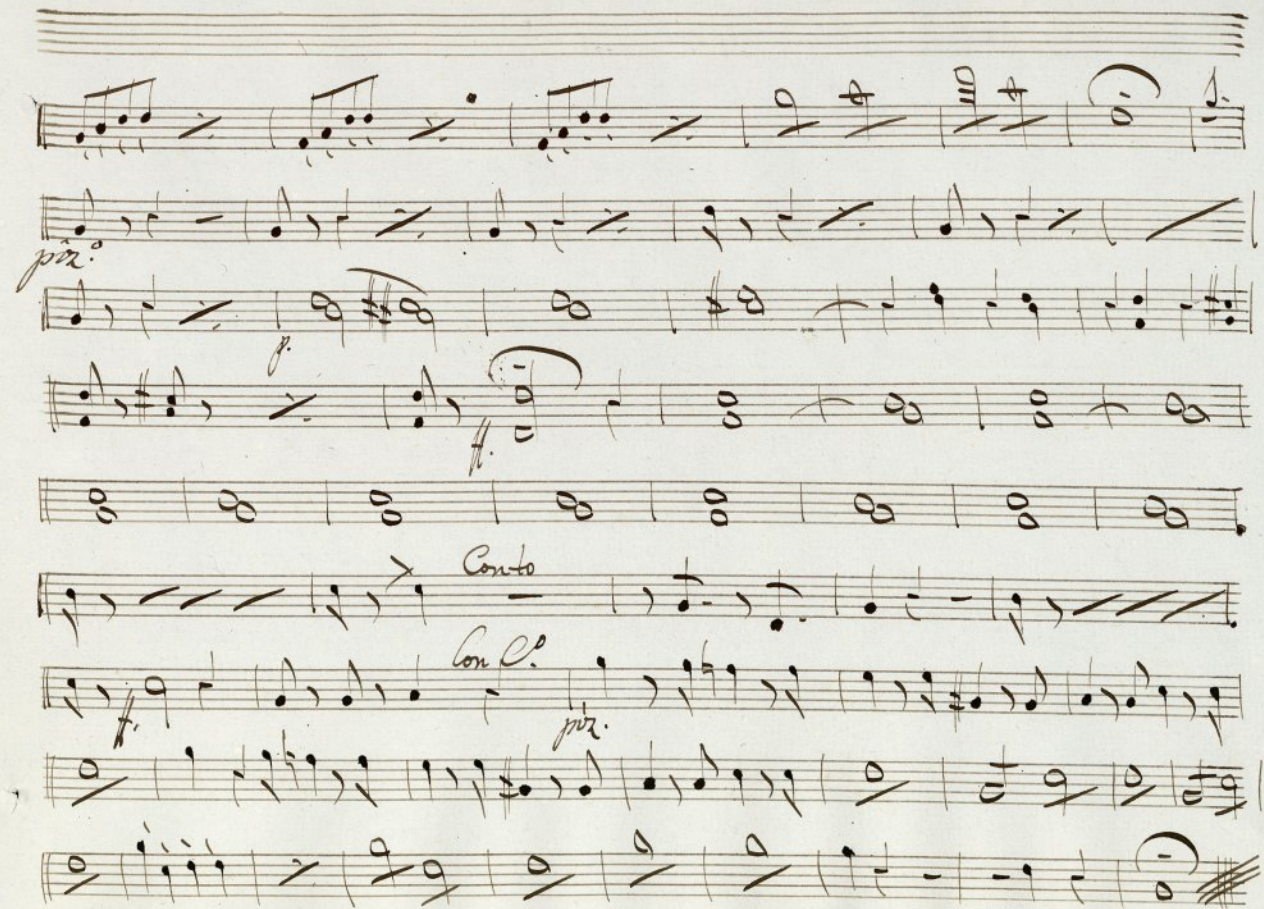 piz.º
p.
ff.
Conto
Con C.º
ff.
piz.